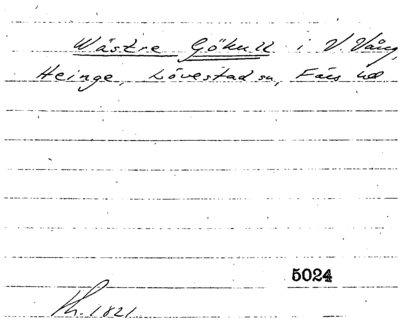 Wästre Gökull i V. Vång,
Heinge, Lövestad sn, Färs hd
5024
Kh. 1821